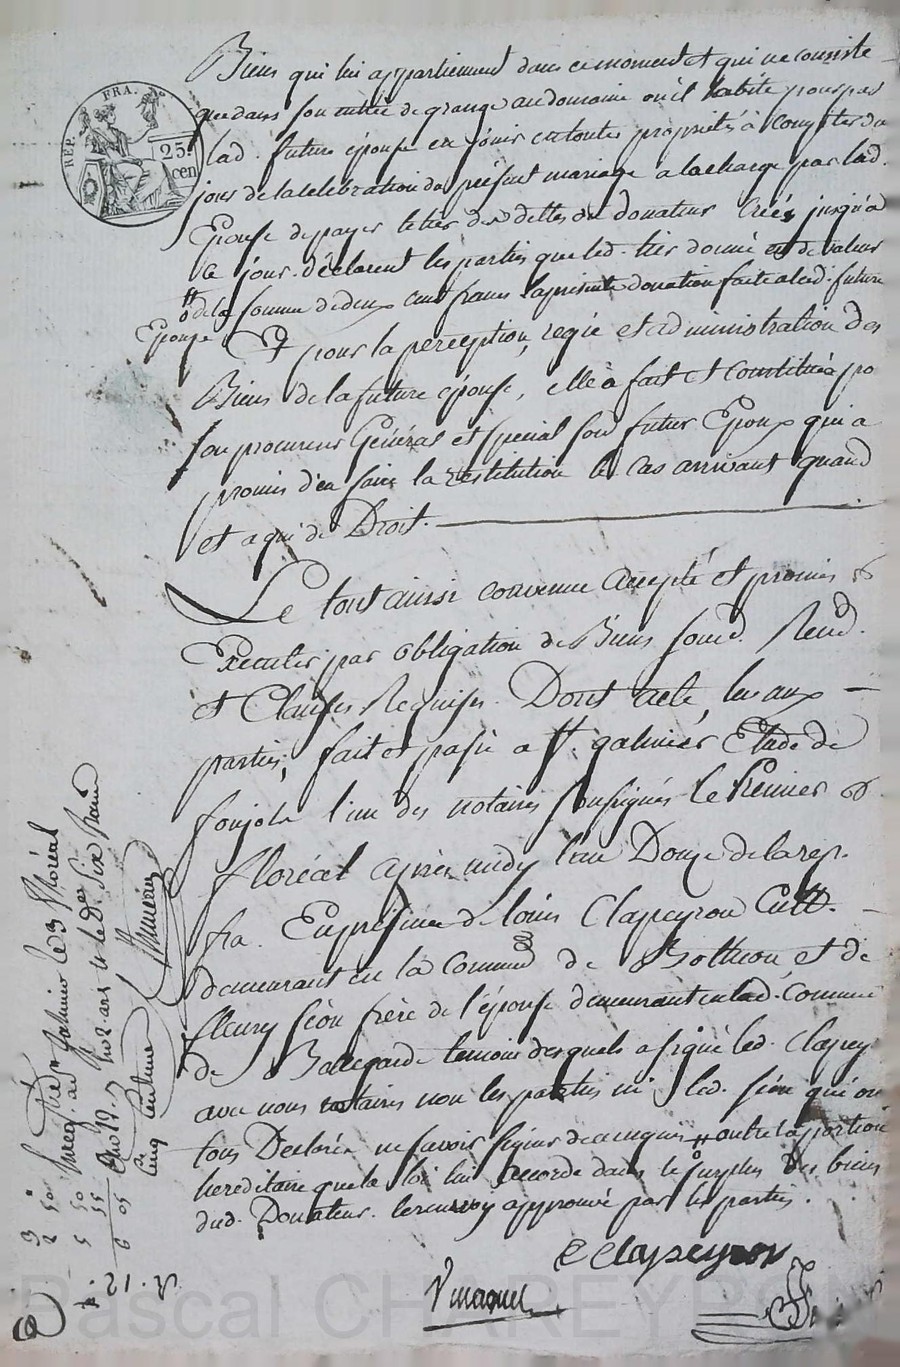 REP. FRA.
25.
cen
Biens qui lui appartiennent dans ce moment et qui ne consiste
que dans son entrée de grange au domaine où il habite pour par
lad. future épouse en jouir en toutes propriétés à compter du
jour de la celebration du présent mariage a la charge par lad.
Epouse de payer le tier des dettes du donateur créés jusqu'a
ce jour. déclarent les parties que led. tier donné est de valeur
de la somme de deux cent francs la présente donation faite a lad. future
Epouse
Et pour la perception, regie et administration des
Biens de la future épouse, elle a fait et constitué po
son procureur Général et spécial son futur Epoux qui a
promis d'en faire la restitution le cas arrivant quand
et a qui de Droit.
Le tout ainsi convenu accepté et promis
Executer par obligation de Biens soumd. Rend.
et Clauses Requises. Dont acte, lu aux
parties, fait et passé a St. galmier Etude de
l'un des notaires soussignés le Premier
floréal après midy l'an Douze de la rep.
fra. En présence de louis Clapeyron Cult.
demeurant en la Commune de Bothéon et de
fleury féon frère de l'épouse demeurant en lad. Commune
de Bellegarde temoins desquels a signé led. Clapey
avec nous notaires non les parties ni led. féon qui on
tous Declaré ne savoir signer de ce enquis outre la portion
hereditaire que la loi lui accorde dans le surplus des biens
dud. Donateur. le renvoy approuvé par les parties.
Clapeyron
galmier le 3 floréal
cinq centime
3
2 50
50
5 55
6 05
Pascal CHAREYRON